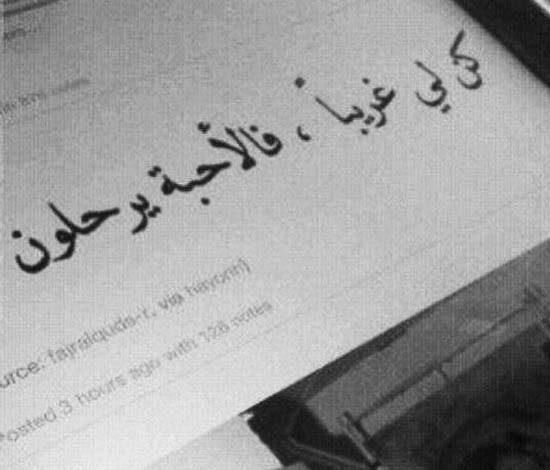 كن لي غريباً ، فالأحبة يرحلون
urce: fajralquds-r, via hayonn)
Posted 3 hours ago with 128 notes